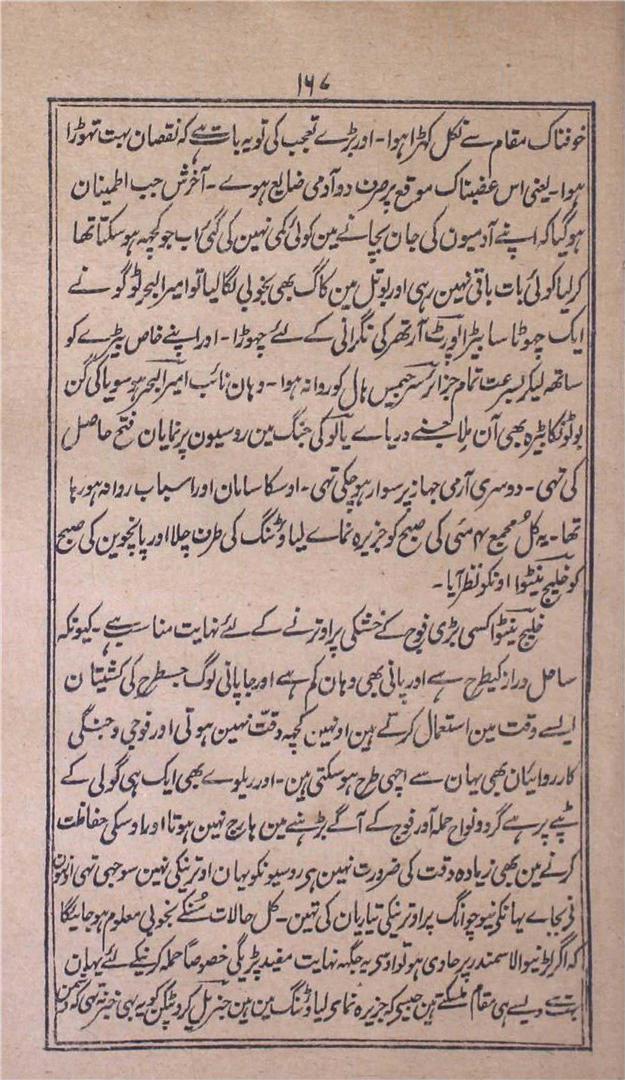 ۱۶۷
خوفناک مقام سے نکل کھڑا ہوا۔ اور بڑے تعجب کی تو یہ بات ہے کہ نقصان بہت تھوڑا
ہوا۔ یعنی اس غضبناک موقع پر صرف دو آدمی ضایع ہوے۔ آخرش جب اطمینان
ہوگیا کہ اپنے آدمیون کی جان بچانے مین کوئی کمی نہین کی گئی اب جو کچہہ ہوسکتا تھا
کرلیا کوئی بات باقی نہین رہی اور بوتل مین کاگ بھی بخوبی لگالیا تو امیر البحر ٹوگو نے
ایک چھوٹا سا بیڑا اور پٹ آرتھر کی نگرانی کے لئے چھوڑا۔ اور اپنے خاص بیڑے کو
ساتھ لیکر بسرعت تمام جزائر سرجیمس ہال کو روانہ ہوا۔ وہان نائب امیر البحر ہوسویا کی گن
بوٹونکا بیڑہ بھی آن ملا جسنے دریاے یالو کی جنگ مین روسیون پر نمایان فتح حاصل
کی تہی۔ دوسری آرمی جہاز پر سوار ہوچکی تہی۔ اوسکا سامان اور اسباب روانہ ہورہا
تھا۔ یہ کل مجمع ۴ مئی کی صبح کو جزیرہ نماے لیاؤٹنگ کی طرف چلا اور پانچوین کی صبح
کو خلیج ینٹوا اونکو نظر آیا۔
خلیج ینٹوا کسی بڑی فوج کے خشکی پر اوترنے کے لئے نہایت مناسب ہے۔ کیونکہ
ساحل دراز کیطرح ہے اور پانی بھی وہان کم ہے اور جاپانی لوگ جسطرح کی کشتیان
ایسے وقت مین استعمال کرتے ہین اونہین کچہہ دقّت نہین ہوتی اور فوجی و جنگی
کارروائیان بھی یہان سے اچہی طرح ہوسکتی ہین۔ اور ریلوے بھی ایک ہی گولی کے
ٹپے پر ہے گرد و نواح حملہ آور فوج کے آگے بڑہنے مین ہارج نہین ہوتا اور اوسکی حفاظت
کرنے مین بھی زیادہ دقت کی ضرورت نہین ہی روسیونکو یہان اوترنیکی نہین سوجہی تہی اونہون
نے بجاے یہانکے نیوچوانگ پر اوترنیکی تیاریان کی تہین۔ کل حالات سُنکے بخوبی معلوم ہوجائیگا
کہ اگر لڑنیوالا سمندر پر حاوی ہو تو اوسے یہ جگہہ نہایت مفید پڑیگی خصوصاً حملہ کرنیکے لئے یہان
بہت سے ویسے ہی مقام ملسکتے ہین جیسے کہ جزیرہ نماے لیاؤٹنگ مین ہین جنرل کروپٹکن کو یہ بہی خبر نہ تہی کہ دشمن